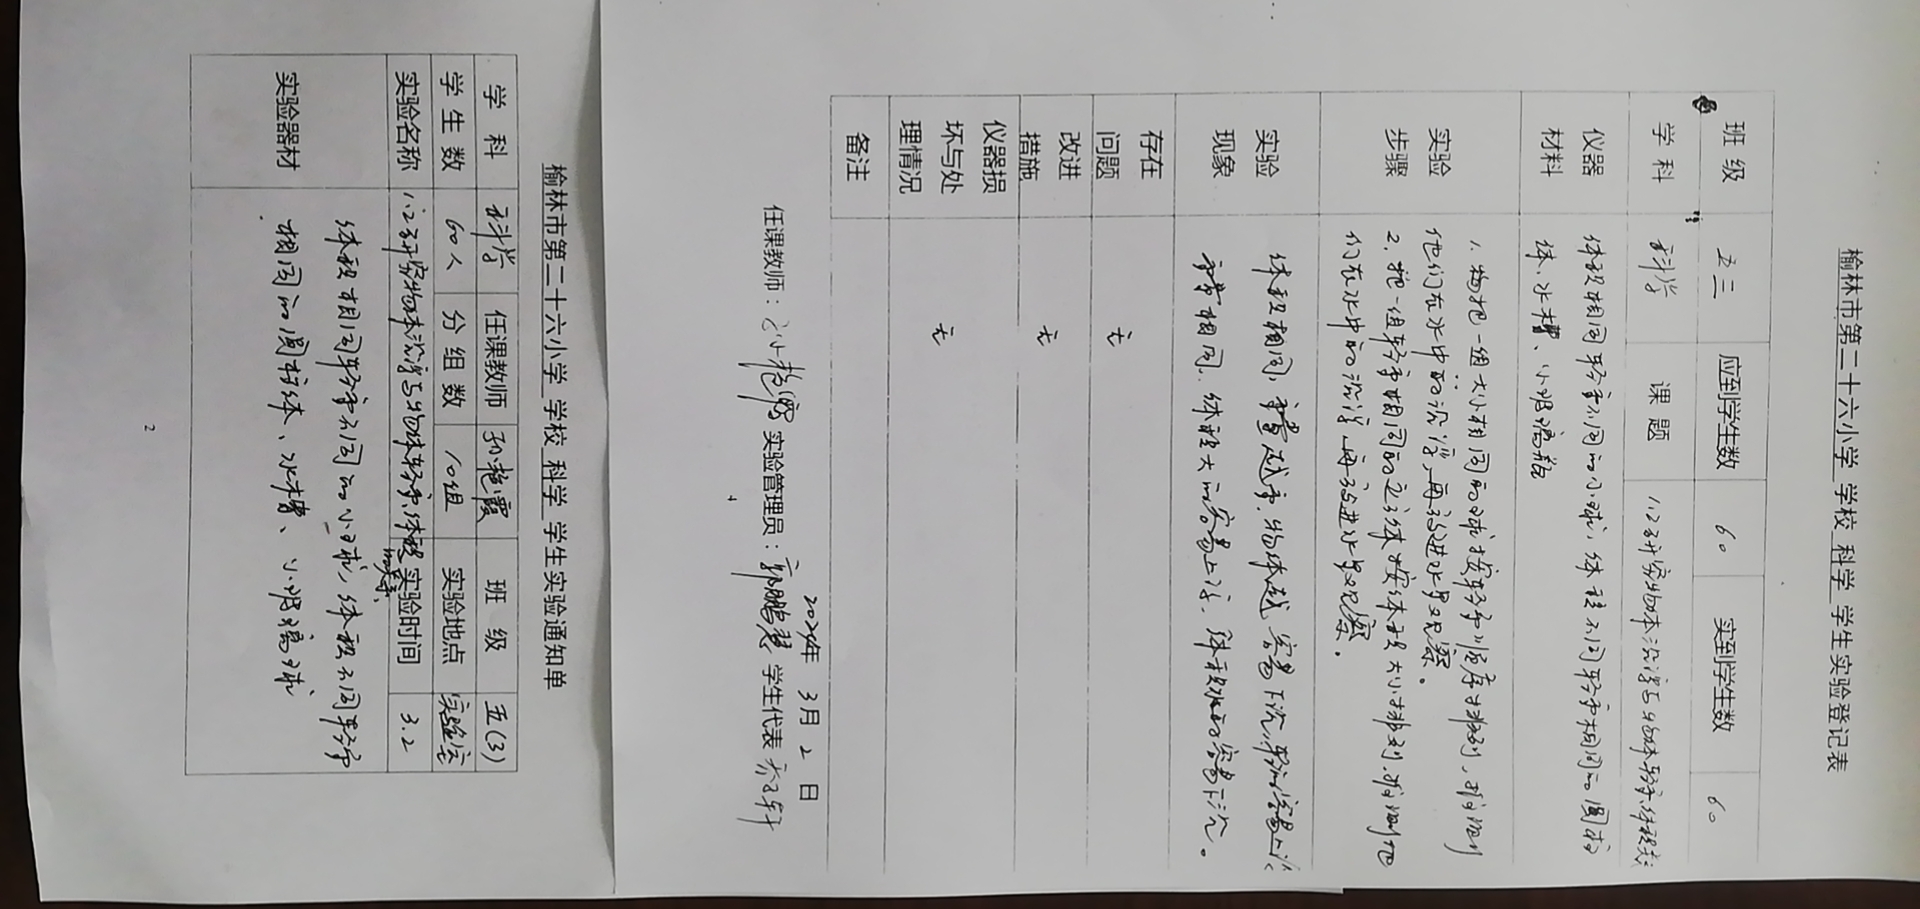 榆林市第二十六小学 学校 科学 学生实验登记表
班级 五三 应到学生数 60 实到学生数 60
学科 科学 课题 1.2研究物体沉浮与物体轻重、体积关系
仪器材料 体积相同轻重不同的小球,体积不同轻重相同的圆柱
体、水槽、小玻璃瓶
实验步骤 1、把一组大小相同的球按轻重顺序排列,推测
他们在水中的沉浮,再放进水里观察。
2、把一组轻重相同的立方体按体积大小排列,推测他
们在水中的沉浮再放进水里观察。
实验现象 体积相同,重量越重,物体越容易下沉,轻的容易上浮
重量相同,体积大的容易上浮,体积小的容易下沉。
存在问题 无
改进措施 无
仪器损坏与处理情况 无
备注
2024年 3月 2 日
任课教师:孙艳霞 实验管理员: 学生代表
4
榆林市第二十六小学 学校 科学 学生实验通知单
学科 科学 任课教师 孙艳霞 班级 五(3)
学生数 60人 分组数 10组 实验地点 实验室
实验名称 1.2研究物体沉浮与物体轻重、体积的关系 实验时间 3.2
实验器材 体积相同轻重不同的小球,体积不同轻重
相同的圆柱体、水槽、小玻璃球
2